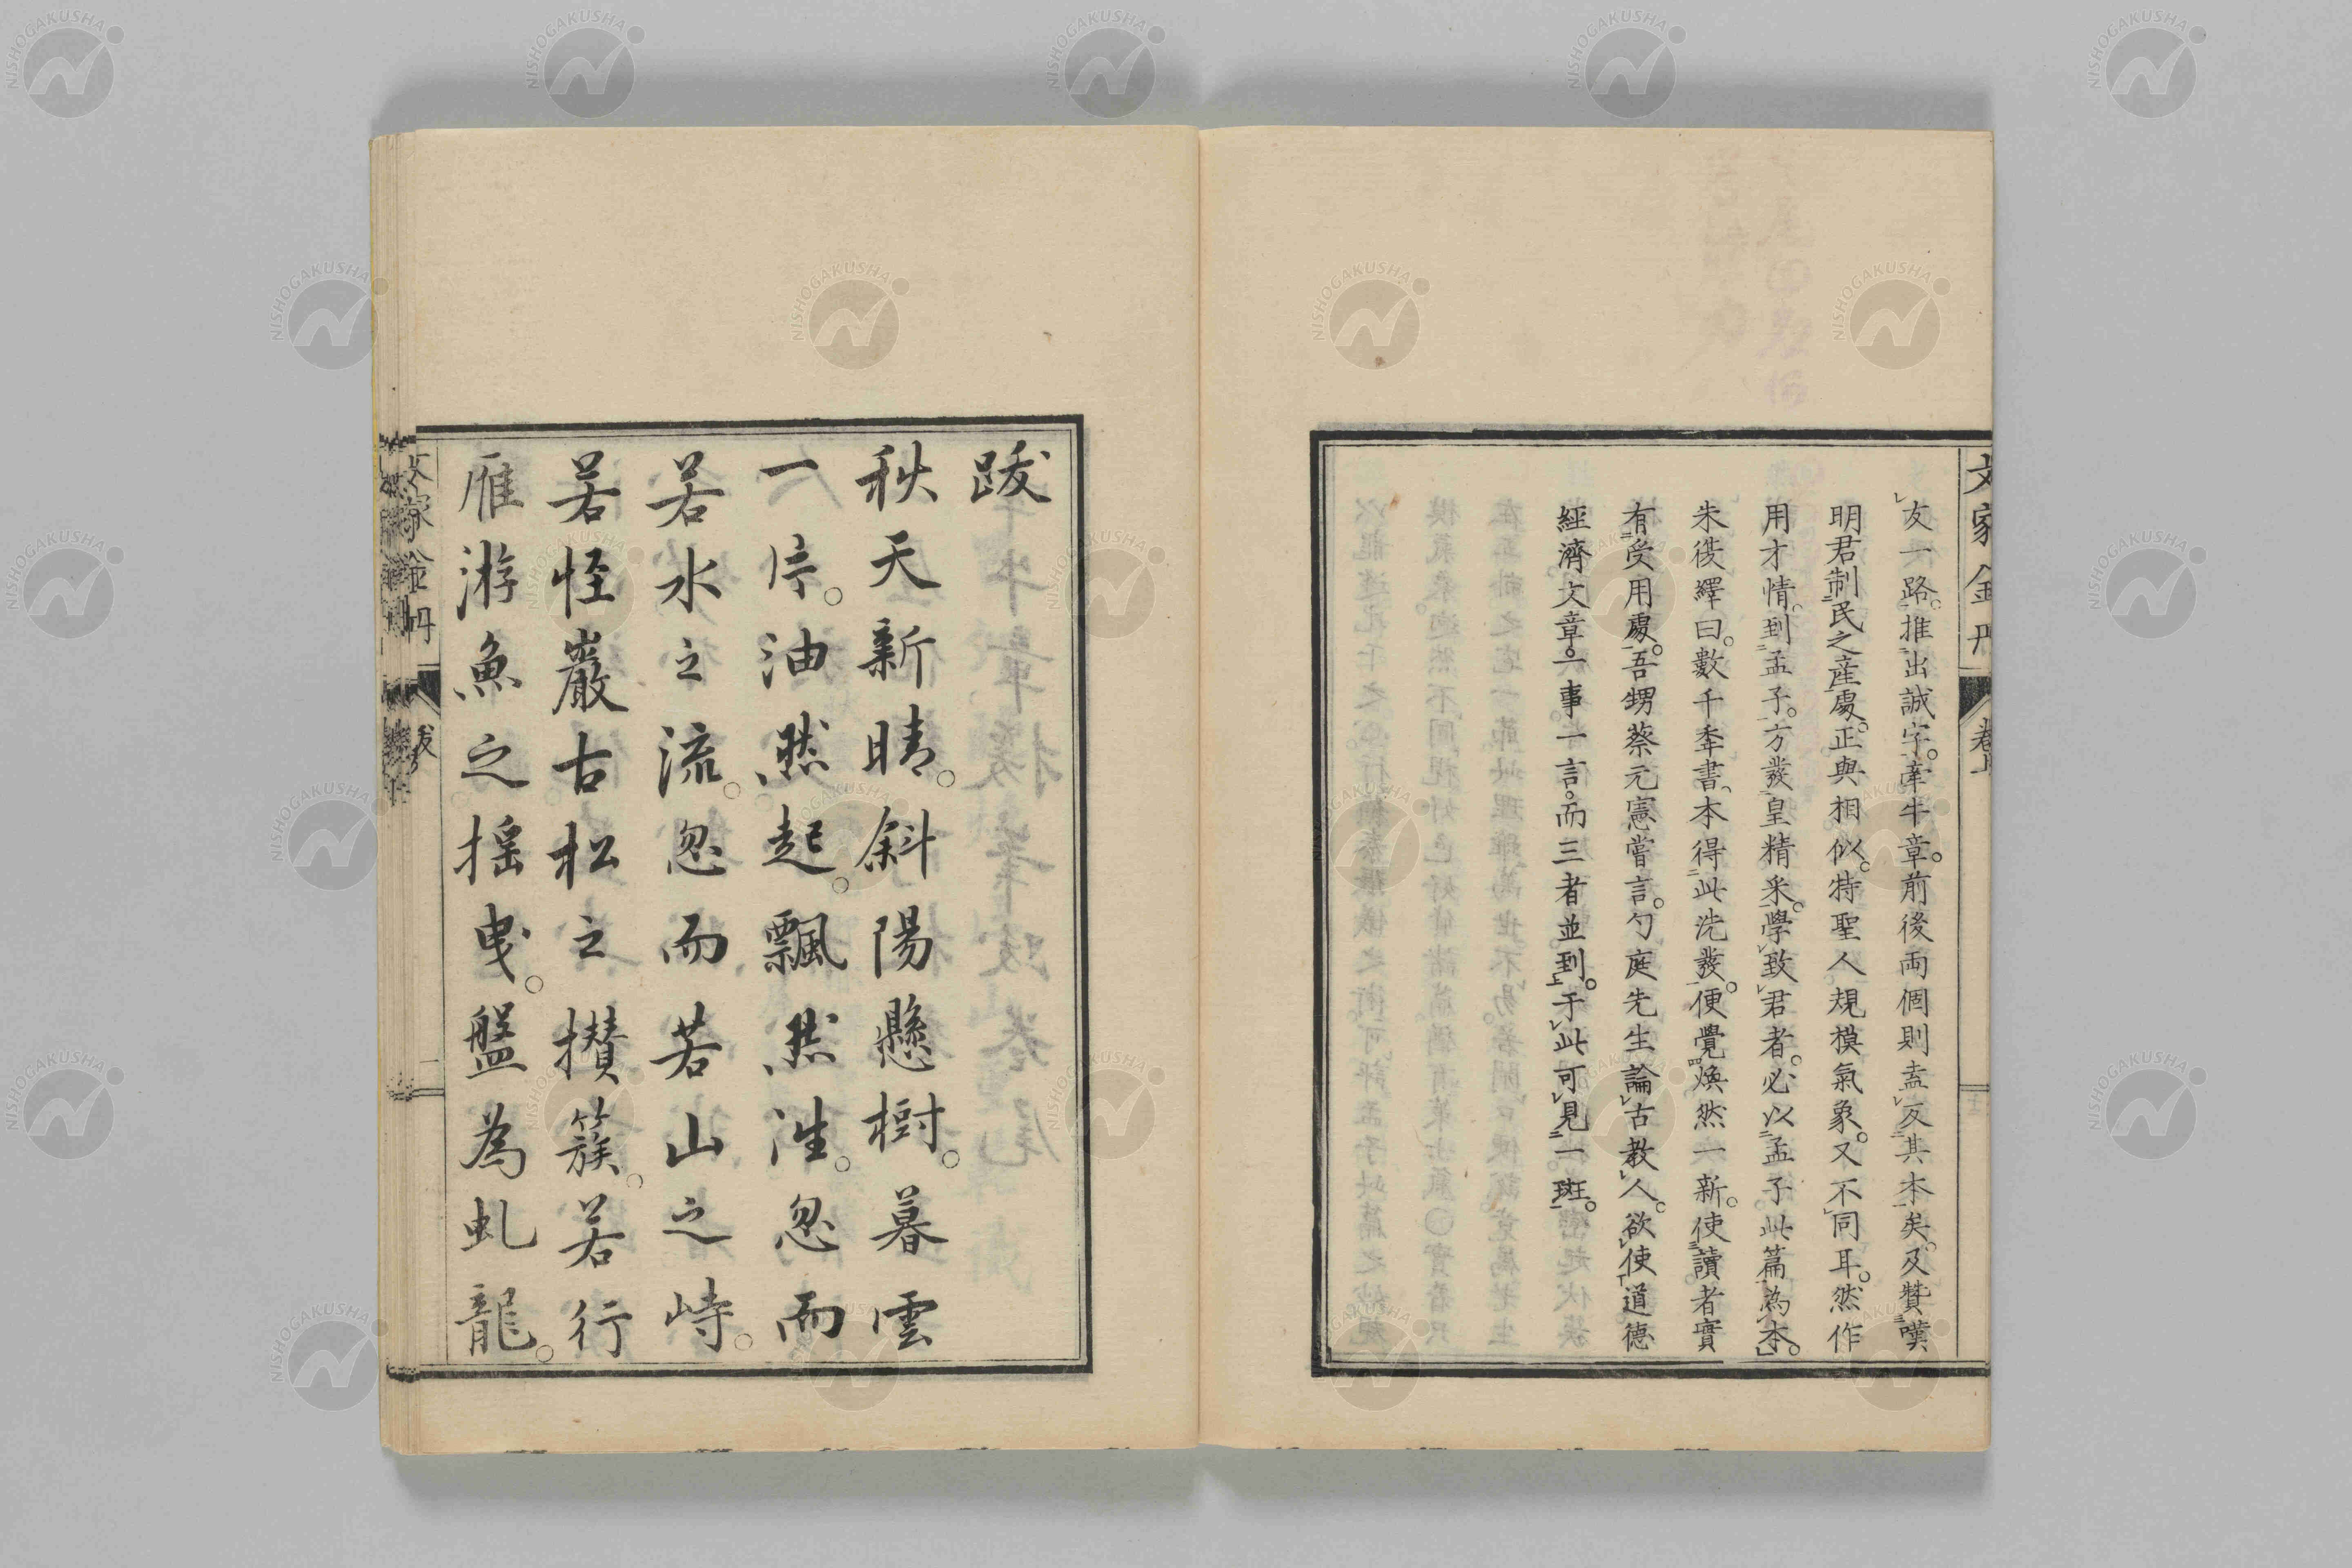 文家金丹 卷上
友一路。推出誠字。牽牛章。前後両個則盍反其本矣。及贊嘆
明君制民之産處。正與相似。特聖人規模氣象。又不同耳。然作
用才情。到孟子。方發皇精采。學致君者。必以孟子此篇為本。
朱徙繹曰。數千年書、本得此洗發。便覺煥然一新。使讀者實
有受用處。吾甥蔡元憲嘗言。勺庭先生論古教人。欲使道德
經濟文章。一事一言。而三者並到。于此可見一班。
跋
秋天新晴。斜陽懸樹。暮雲
一片。油然起。飄然浩。忽而
若水之流。忽而若山之峙。
若怪巖古松之攅簇。若行
雁游魚之揺曳。盤為虬龍。
文家金丹 跋 一
NISHOGAKUSHA